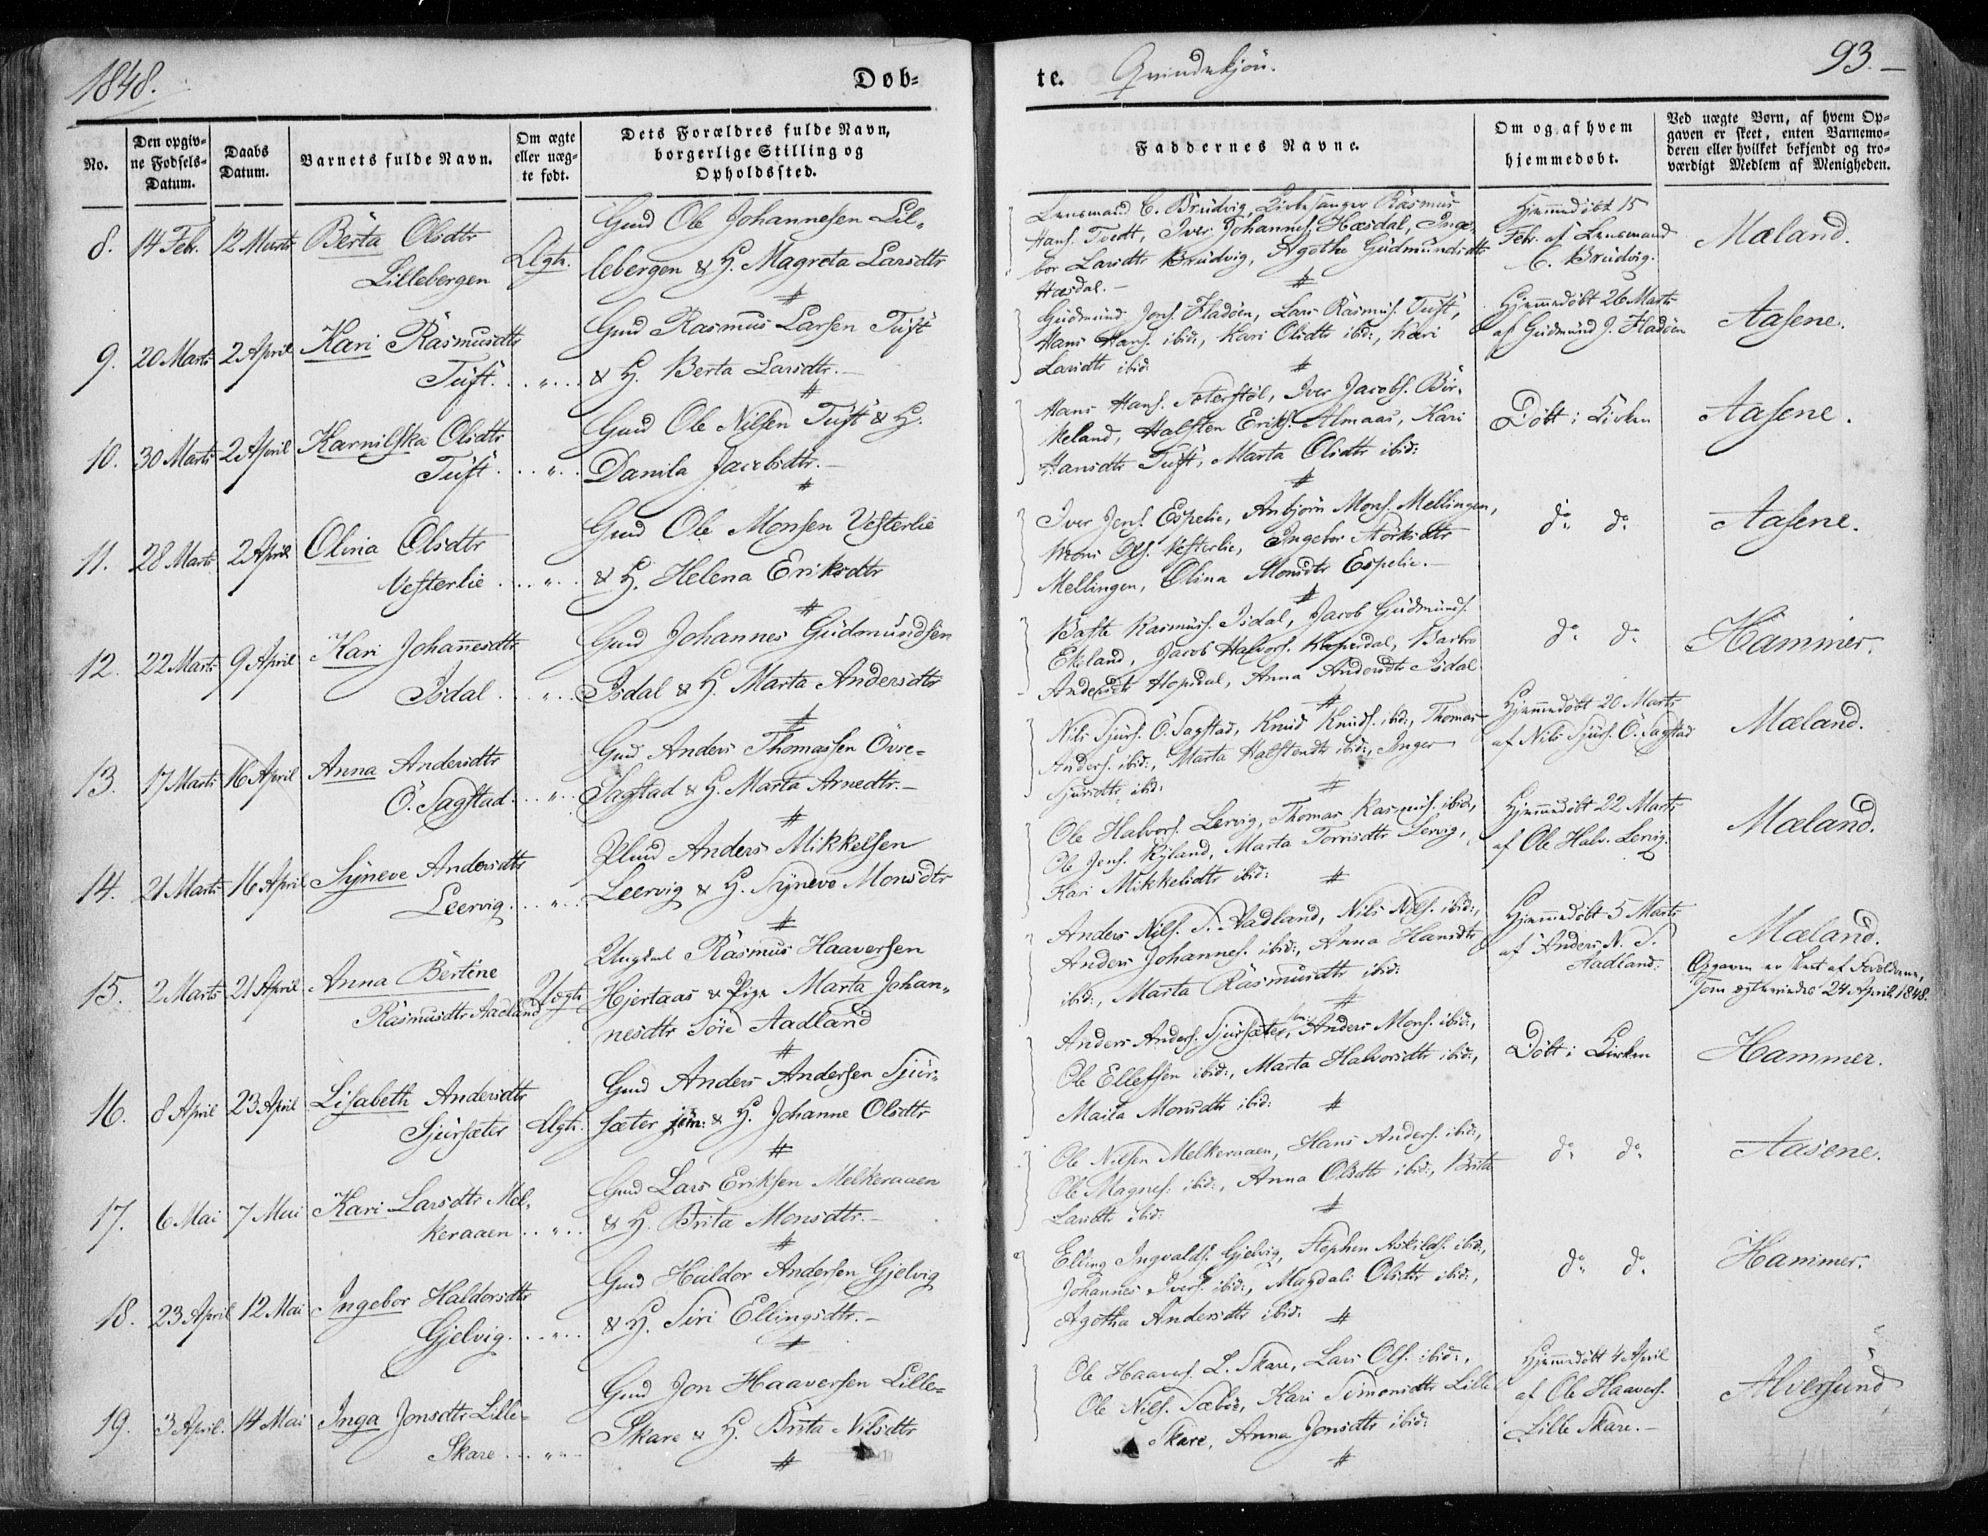 1848.
Døb=
te.
Qvindekjøn.
93.
No.
Den opgiv-
ne Fødsels-
Datum.
Daabs
Datum.
Barnets fulde Navn.
Om ægte
eller uæg-
te født.
Dets Forældres fulde Navn,
borgerlige Stilling og
Opholdssted.
Faddernes Navne.
Om og af hvem
hjemmedøbt.
Ved uægte Børn, af hvem Op-
gaven er skeet, enten Barnemo-
deren eller hvilket bekjendt og tro-
værdigt Medlem af Menigheden.
8. 14 Febr. 12 Marts Berta Olsdtr
Lillebergen
Ægte.
Gmd Ole Johannesen Lil-
lebergen & H. Magreta Larsdtr
Lensmand C. Brüdvig, Kirkesanger Rasmus
Hans. Tvedt, Iver Johannes. Hæsdal, Inge-
bor Larsdtr Brüdvig, Agothe Güdmündsdtr
Hæsdal.
Hjemmedøbt 15
Febr. af Lensmand
C. Brüdvig.
Mæland.
9. 20 Marts 2 April Kari Rasmusdtr
Tüft. . . " . .
Gmd Rasmus Larsen Tüft
& H. Berta Larsdtr.
Güdmünd Jons. Fladøen, Lars Rasmüs. Tüft,
Hans Hans. ibid:, Kari Olsdtr ibid:, Kari
Larsdtr ibid:
Hjemmedøbt 26 Marts
af Güdmünd J. Fladøen
Aasene.
10. 30 Marts 2 April Karnilska Olsdtr
Tüft . . . " . .
Gmd Ole Nilsen Tüft & H.
Danila Jacobsdtr.
Hans Hans. Sæterstøl, Iver Jacobs. Bir-
keland, Halsten Eriks. Almaas, Kari
Hansdtr Tüft, Marta Olsdtr ibid:
Døbt i Kirken
Aasene.
11. 28 Marts 2 April Olina Olsdtr
Vesterlie . . . " . .
Gmd Ole Monsen Vesterlie
& H. Helena Eriksdtr
Iver Jens. Espelie, Anbjørn Mons. Mellingen,
Mons Ols. Vesterlie, Ingebor Størksdtr
Mellingen, Olina Monsdtr Espelie.
do do
Aasene.
12. 22 Marts 9 April Kari Johannesdtr
Isdal . . " . .
Gmd Johannes Güdmundsen
Isdal & H. Marta Andersdtr
Baste Rasmüs. Isdal, Jacob Güdmünds.
Ekeland, Jacob Halvors. Hopsdal, Barbro
Andersdtr Hopsdal, Anna Andersdtr Isdal
do do
Hammer.
13. 17 Marts 16 April Anna Andersdtr
Ö. Sagstad . . . " . .
Gmd Anders Thomassen Övre-
Sagstad & H. Marta Arnedtr.
Nils Sjurs. Ö. Sagstad, Knud Knuds. ibid:, Thomas
Anders. ibid:, Marta Halstendtr ibid:, Inger
Sjursdtr ibid:
Hjemmedøbt 20 Marts
af Nils Sjurs. Ö. Sagstad
Mæland.
14. 21 Marts 16 April Syneve Andersdtr
Leervig . . . " . .
Anders Mikkelsen
Leervig & H. Syneve Monsdtr
Ole Halvors. Lervig, Thomas Rasmüs. ibid:,
Ole Jens. Ryland, Marta Torrisdtr Lervig,
Kari Mikkelsdtr ibid:
Hjemmedøbt 22 Marts
af Ole Halv. Lervig.
Mæland.
15. 2 Marts 21 April Anna Bertine
Rasmusdtr Aadland
Uægte
Ungkarl Rasmus Haaversen
Hjertaas & Pige Marta Johan-
nesdtr Søre Aadland
Anders Nils. S. Aadland, Nils Nils. ibid:,
Anders Johannes. ibid:, Anna Hansdtr
ibid:, Marta Rasmusdtr ibid:
Hjemmedøbt 5 Marts
af Anders N. S.
Aadland.
Mæland.
Opgaven er skeet af Forældrene,
som ægteviedes 24 April 1848.
16. 8 April 23 April Lisabeth Andersdtr
Sjursæter
Ægte.
Gmd Anders Andersen Sjur-
sæter jün: & H. Johanne Olsdtr
Anders Anders. Sjursæter, Anders Mons. ibid:,
Ole Ellefsen ibid:, Marta Halvorsdtr ibid:,
Maila Monsdtr ibid:
Døbt i Kirken
Hammer.
17. 6 Mai 7 Mai Kari Larsdtr Mel-
keraaen . . " . .
Gmd Lars Eriksen Melkeraaen
& H. Brita Monsdtr.
Ole Nilsen Melkeraaen, Hans Anders. ibid:,
Ole Magnes. ibid:, Anna Olsdtr ibid:, Brita
Larsdtr ibid:
do do
Aasene.
18. 23 April 12 Mai Ingebor Haldorsdtr
Gjelvig . . . " . .
Gmd Haldor Andersen Gjelvig
& H. Siri Ellingsdtr.
Elling Ingvalds. Gjelvig, Stephen Askilds. ibid:,
Johannes Ivers. ibid:, Magdali Olsdtr ibid:,
Agotha Andersdtr ibid:
do do
Hammer.
19. 3 April. 14 Mai Inga Jonsdtr Lille-
Skare . . . " . .
Gmd Jon Haaversen Lille-
Skare & H. Brita Nilsdtr
Ole Haavers. L. Skare, Lars Ols. ibid:,
Ole Nils. Sæbøe, Kari Simonsdtr Lille
Skare, Anna Jonsdtr ibid:
Hjemmedøbt 4 April
af Ole Haavers.
Lille Skare.
Alversund